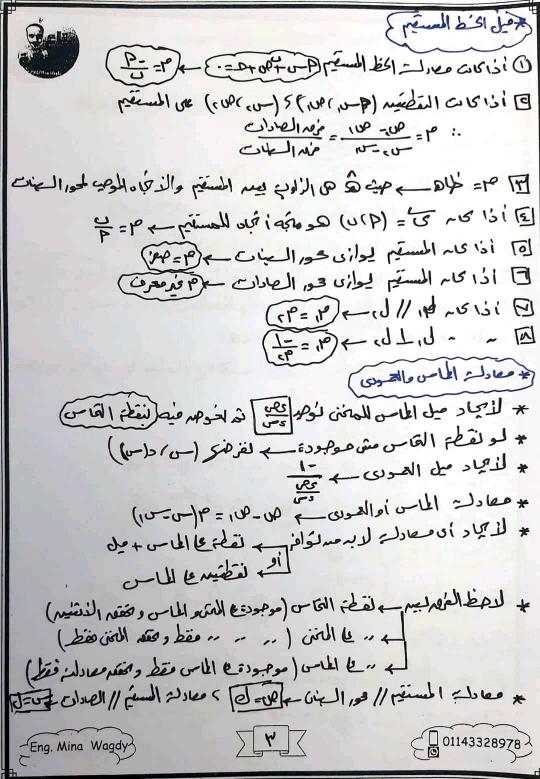 * ميل الخط المستقيم
١ اذا كانت معادلة الخط المستقيم أس + ب ص + جـ = ٠ ← م = -أ/ب
٢ اذا كانت النقطتين (س١، ص١) ؟ (س٢، ص٢) على المستقيم
∴ م = (ص٢ - ص١)/(س٢ - س١) = فرق الصادات/فرق السينات
٣ م = ظاهـ ← حيث هـ هى الزاوية بين المستقيم والاتجاه الموجب لمحور السينات
٤ اذا كان = (أ، ب) هو متجه اتجاه للمستقيم ← م = ب/أ
٥ اذا كان المستقيم يوازى محور السينات ← م = صفر
٦ اذا كان المستقيم يوازى محور الصادات ← م غير معرف
٧ اذا كان ل١ // ل٢ ← م١ = م٢
٨ " " ل١ ⊥ ل٢ ← م١ = -١/م٢
* معادلة المماس والعمودى
* لأيجاد ميل المماس للمنحنى نوجد ءص/ءس ثم نعوض فيه بنقطة التماس
* لو نقطة التماس مش موجودة ← نفرضها (س، د(س))
* لأيجاد ميل العمودى ← -١/(ءص/ءس)
* معادلة المماس أو العمودى ← ص - ص١ = م(س - س١)
* لأيجاد أى معادلة لابد من توافر ← نقطة ∋ المماس + ميل
أو ← نقطتين ∋ المماس
* لاحظ الفرق بين ← نقطة التماس (موجودة ∋ المنحنى والمماس وتحقق الأثنين)
← " ∋ المنحنى ( " " " فقط وتحقق المنحنى فقط)
← " ∋ المماس (موجودة ∋ المماس فقط وتحقق معادلته فقط)
* معادلة المستقيم // محور السينات ← ص = ك ، معادلة المستقيم // الصادات ← س = ل
Eng. Mina Wagdy
٣
01143328978